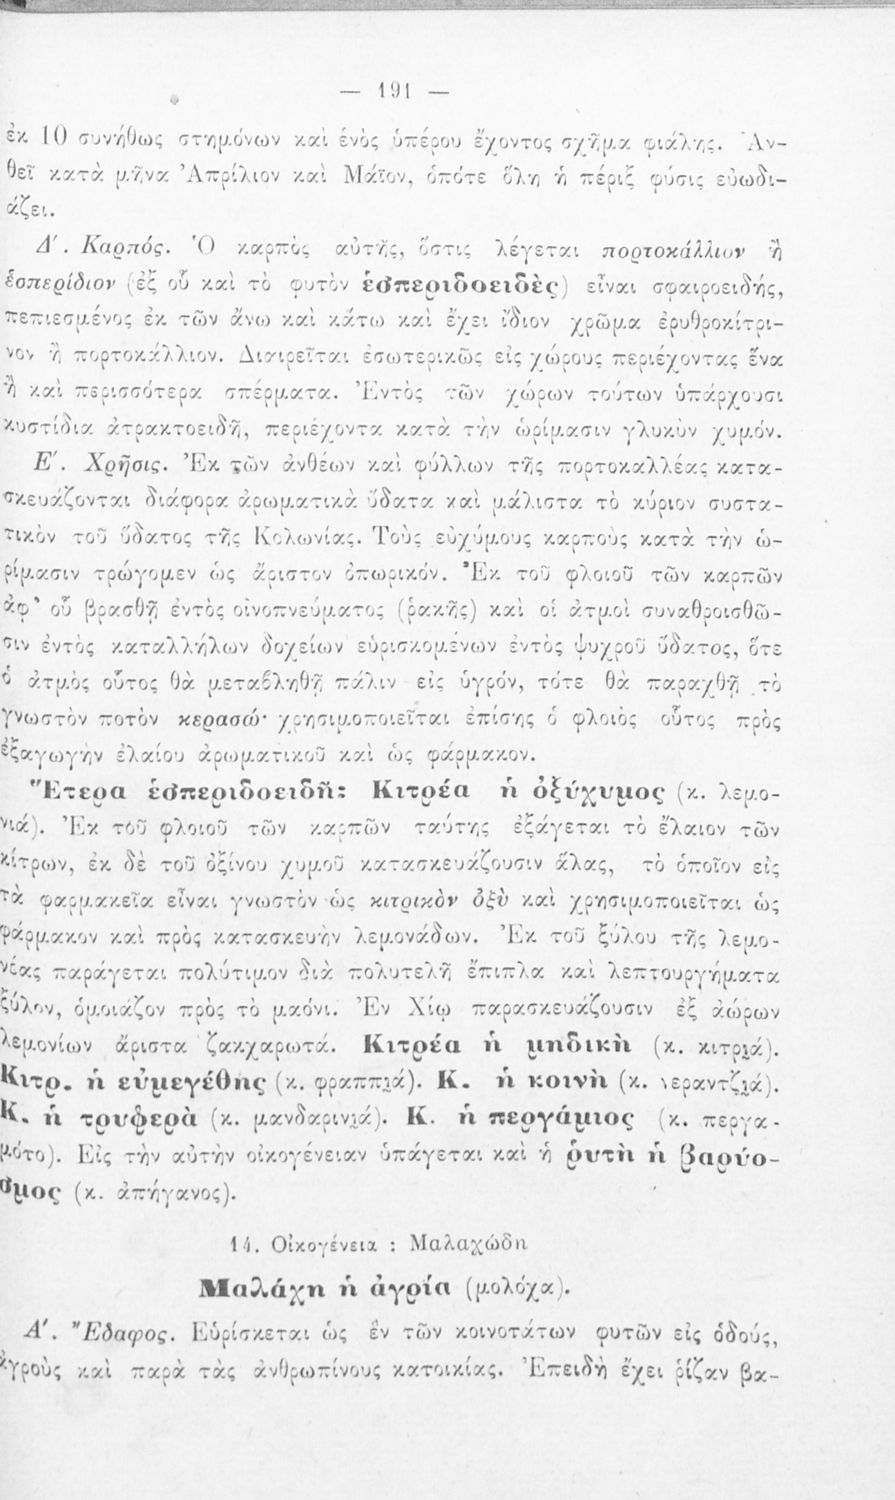 — 191 —
ἐκ 10 συνήθως στημόνων καὶ ἑνὸς ὑπέρου ἔχοντος σχῆμα φιάλης. Ἀν-
θεῖ κατὰ μῆνα Ἀπρίλιον καὶ Μάϊον, ὁπότε ὅλη ἡ πέριξ φύσις εὐωδι-
άζει.
Δ΄. Καρπός. Ὁ καρπὸς αὐτῆς, ὅστις λέγεται πορτοκάλλιον ἢ
ἑσπερίδιον (ἐξ οὗ καὶ τὸ φυτὸν ἑσπεριδοειδὲς) εἶναι σφαιροειδής,
πεπιεσμένος ἐκ τῶν ἄνω καὶ κάτω καὶ ἔχει ἴδιον χρῶμα ἐρυθροκίτρι-
νον ἢ πορτοκάλλιον. Διαιρεῖται ἐσωτερικῶς εἰς χώρους περιέχοντας ἕνα
ἢ καὶ περισσότερα σπέρματα. Ἐντὸς τῶν χώρων τούτων ὑπάρχουσι
κυστίδια ἀτρακτοειδῆ, περιέχοντα κατὰ τὴν ὡρίμασιν γλυκὺν χυμόν.
Ε΄. Χρῆσις. Ἐκ τῶν ἀνθέων καὶ φύλλων τῆς πορτοκαλλέας κατα-
σκευάζονται διάφορα ἀρωματικὰ ὕδατα καὶ μάλιστα τὸ κύριον συστα-
τικὸν τοῦ ὕδατος τῆς Κολωνίας. Τοὺς εὐχύμους καρποὺς κατὰ τὴν ὡ-
ρίμασιν τρώγομεν ὡς ἄριστον ὀπωρικόν. Ἐκ τοῦ φλοιοῦ τῶν καρπῶν
ἀφ᾽ οὗ βρασθῇ ἐντὸς οἰνοπνεύματος (ῥακῆς) καὶ οἱ ἀτμοὶ συναθροισθῶ-
σιν ἐντὸς καταλλήλων δοχείων εὑρισκομένων ἐντὸς ψυχροῦ ὕδατος, ὅτε
ὁ ἀτμὸς οὗτος θὰ μεταβληθῇ πάλιν εἰς ὑγρόν, τότε θὰ παραχθῇ τὸ
γνωστὸν ποτὸν κερασώ· χρησιμοποιεῖται ἐπίσης ὁ φλοιὸς οὗτος πρὸς
ἐξαγωγὴν ἐλαίου ἀρωματικοῦ καὶ ὡς φάρμακον.
Ἕτερα ἑσπεριδοειδῆ: Κιτρέα ἡ ὀξύχυμος (κ. λεμο-
νιά). Ἐκ τοῦ φλοιοῦ τῶν καρπῶν ταύτης ἐξάγεται τὸ ἔλαιον τῶν
κίτρων, ἐκ δὲ τοῦ ὀξίνου χυμοῦ κατασκευάζουσιν ἅλας, τὸ ὁποῖον εἰς
τὰ φαρμακεῖα εἶναι γνωστὸν ὡς κιτρικὸν ὀξὺ καὶ χρησιμοποιεῖται ὡς
φάρμακον καὶ πρὸς κατασκευὴν λεμονάδων. Ἐκ τοῦ ξύλου τῆς λεμο-
νέας παράγεται πολύτιμον διὰ πολυτελῆ ἔπιπλα καὶ λεπτουργήματα
ξύλον, ὁμοιάζον πρὸς τὸ μαόνι. Ἐν Χίῳ παρασκευάζουσιν ἐξ ἀώρων
λεμονίων ἄριστα ζακχαρωτά. Κιτρέα ἡ μηδικὴ (κ. κιτριά).
Κιτρ. ἡ εὐμεγέθης (κ. φραππιά). Κ. ἡ κοινὴ (κ. νεραντζιά).
Κ. ἡ τρυφερὰ (κ. μανδαρινιά). Κ. ἡ περγάμιος (κ. περγα-
μότο). Εἰς τὴν αὐτὴν οἰκογένειαν ὑπάγεται καὶ ἡ ῥυτὴ ἡ βαρύο-
σμος (κ. ἀπήγανος).
14. Οἰκογένεια : Μαλαχώδη
Μαλάχη ἡ ἀγρία (μολόχα).
Α΄. Ἔδαφος. Εὑρίσκεται ὡς ἓν τῶν κοινοτάτων φυτῶν εἰς ὁδούς,
ἀγροὺς καὶ παρὰ τὰς ἀνθρωπίνους κατοικίας. Ἐπειδὴ ἔχει ῥίζαν βα-